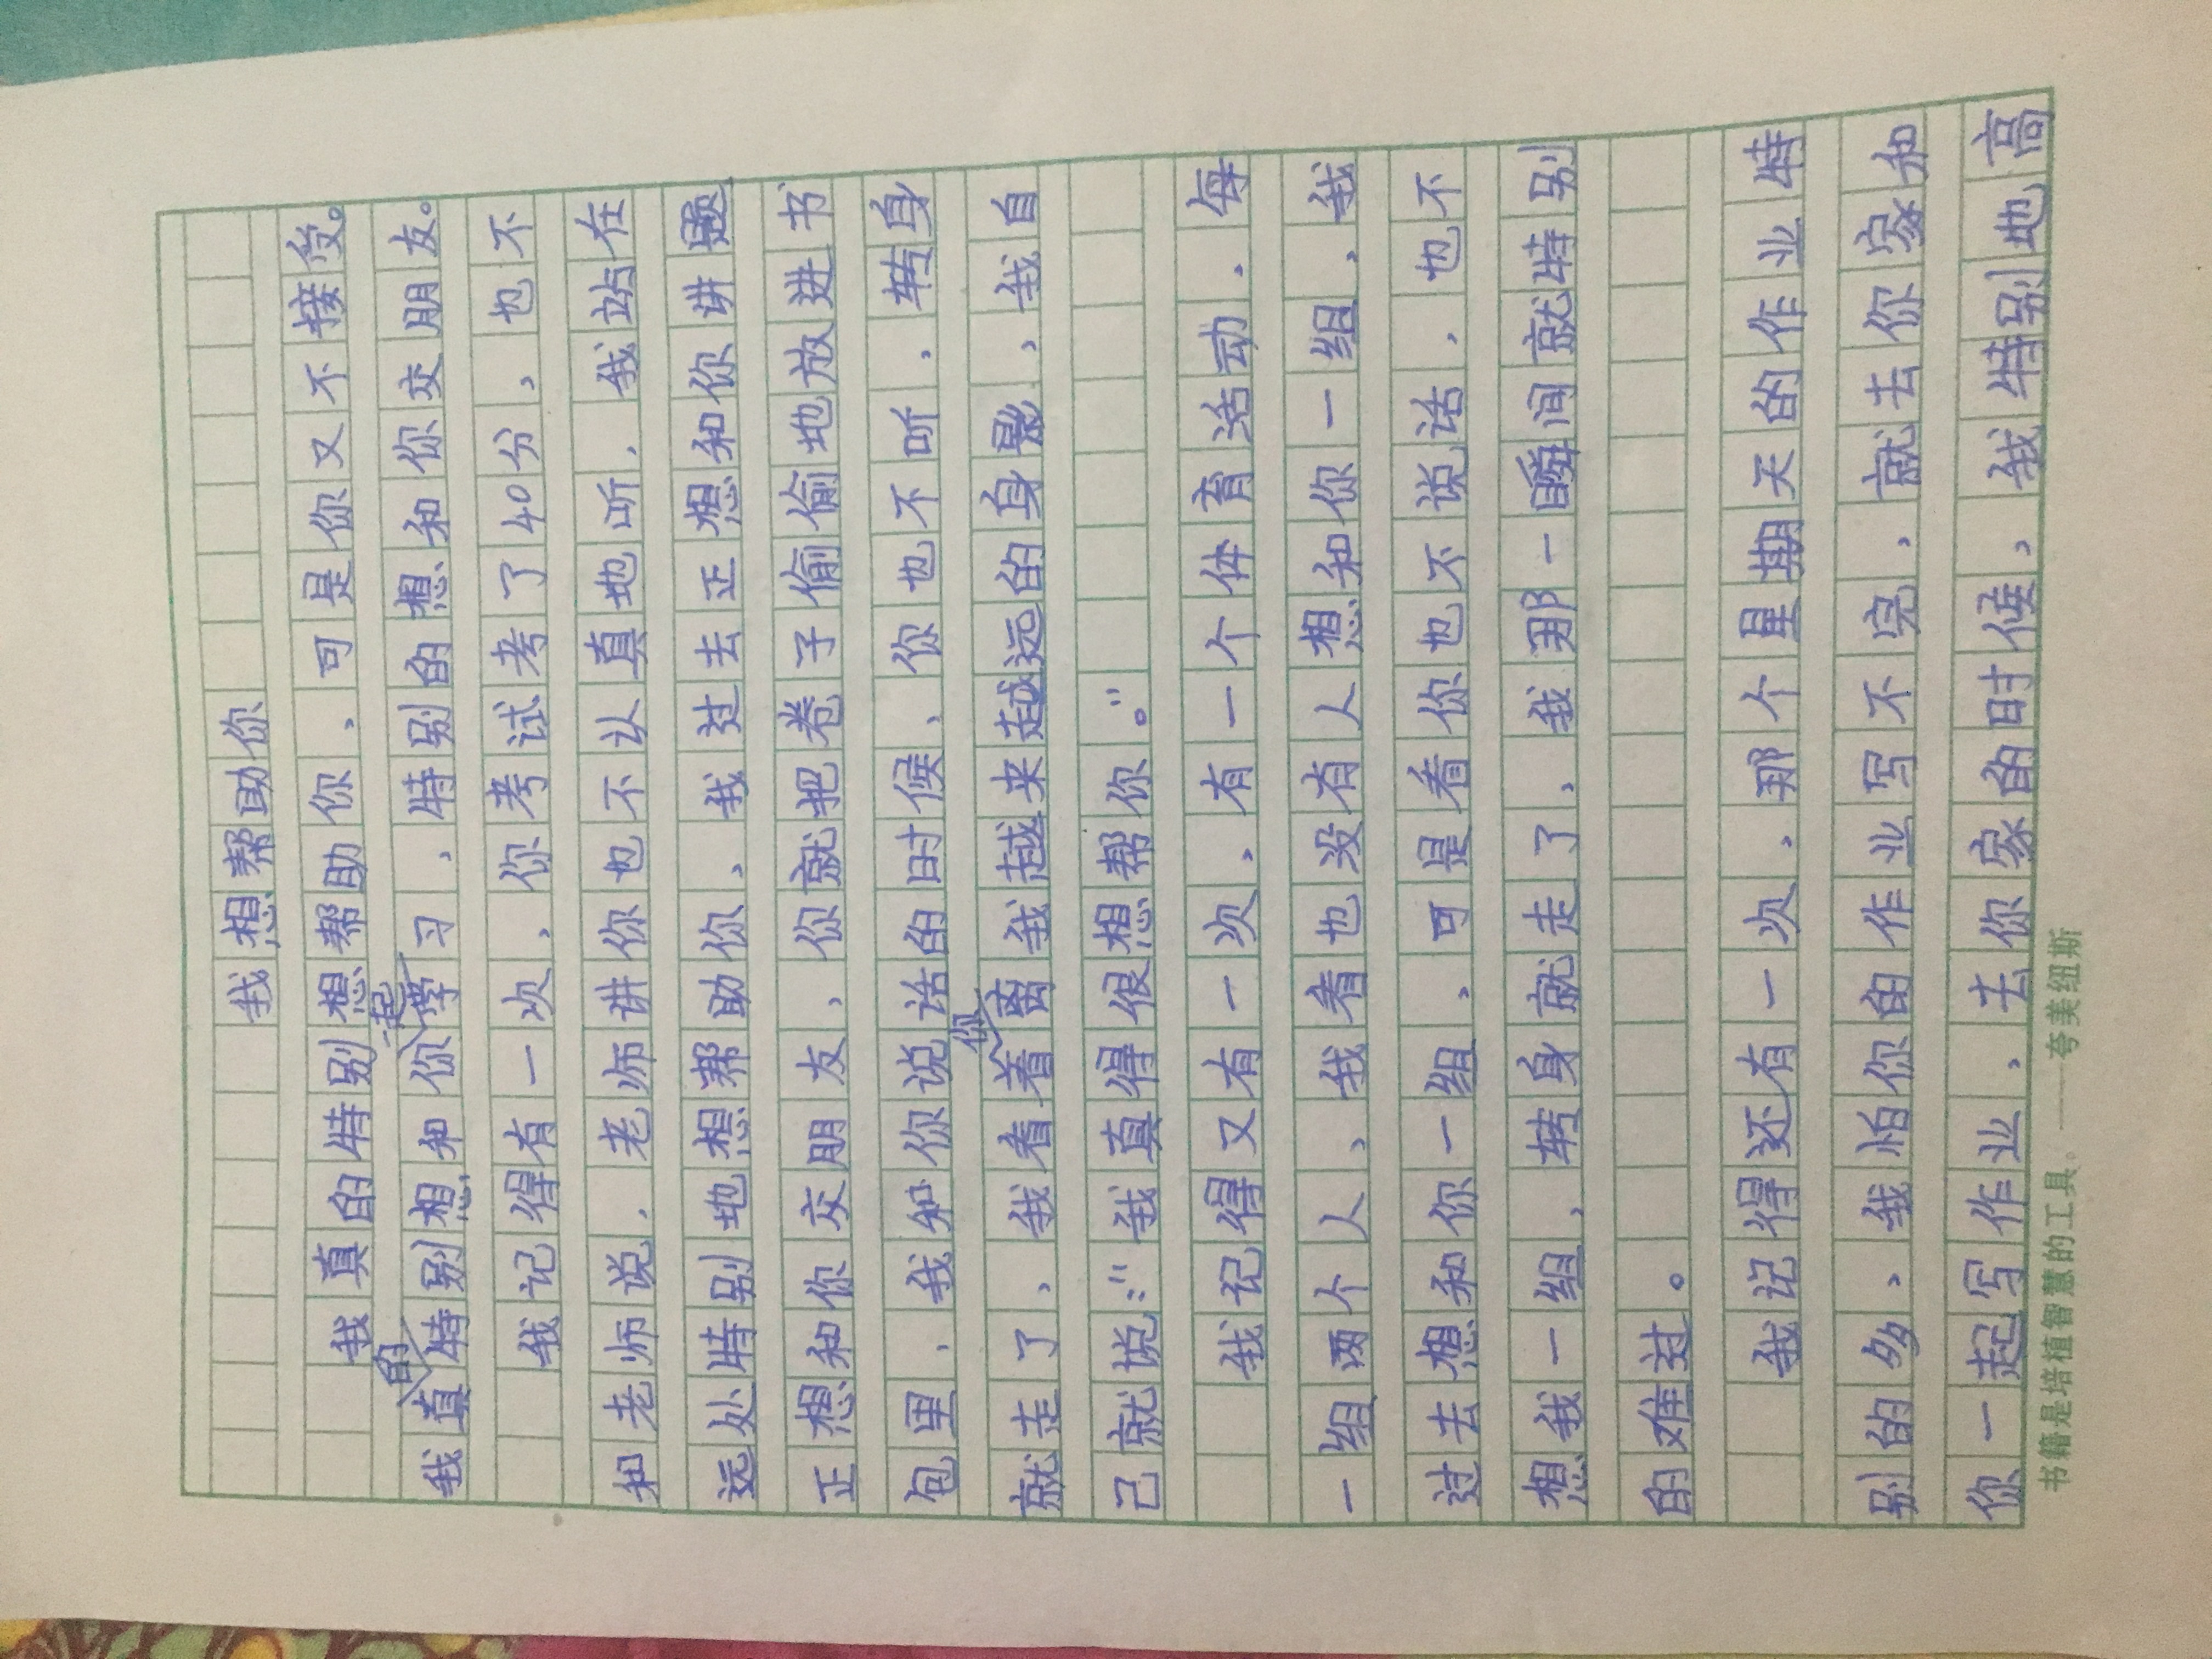 我想帮助你
我真的特别想帮助你，可是你又不接受。
我真的特别想和你一起学习，特别的想和你交朋友。
我记得有一次，你考试考了40分，也不
和老师说，老师讲你也不认真地听，我站在
远处特别地想帮助你，我过去正想和你讲题
正想和你交朋友，你就把卷子偷偷地放进书
包里，我和你说话的时候，你也不听，转身
就走了，我看着你离我越来越远的身影，我自
己就说：“我真得很想帮你。”
我记得又有一次，有一个体育活动，每
一组两个人，我看也没有人想和你一组，我
过去想和你一组，可是看你也不说话，也不
想我一组，转身就走了，我那一瞬间就特别
的难过。
我记得还有一次，那个星期天的作业特
别的多，我怕你的作业写不完，就去你家和
你一起写作业，去你家的时候，我特别地高
书籍是培植智慧的工具。——夸美纽斯